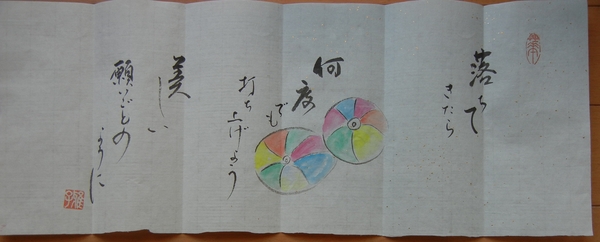 落ちて
きたら
何度
でも
打ち上げよう
美しい
願いごとの
ように